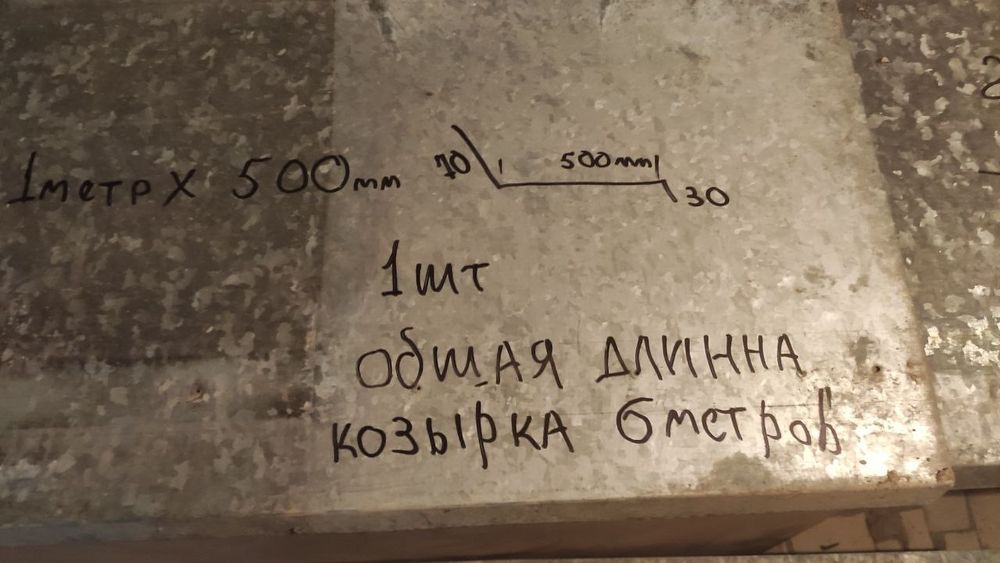 1метр х 500мм
70
500mm
30
1шт
общая длинна
козырка 6 метров
2